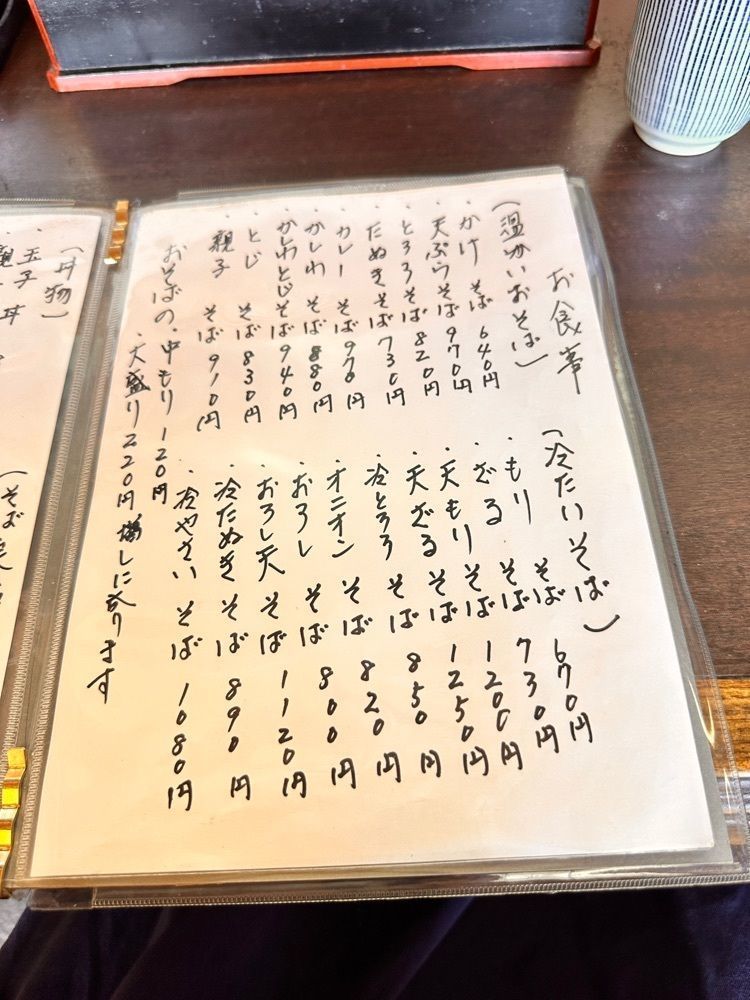 お食事
(温かいおそば)
・かけ そば 640円
・天ぷらそば 970円
・とろろそば 820円
・たぬきそば 730円
・カレー そば 970円
・かしわ そば 880円
・かしわとじそば 940円
・とじ そば 830円
・親子 そば 910円
おそばの・中もり 120円
・大盛り220円増しになります
(冷たいそば)
・もり そば 670円
・ざる そば 730円
・天もり そば 1200円
・天ざる そば 1250円
・冷とろろ そば 850円
・オニオン そば 820円
・おろし そば 800円
・おろし天 そば 1120円
・冷たぬき そば 890円
・冷やさい そば 1080円
(丼物)
・玉子
親子丼
(そば